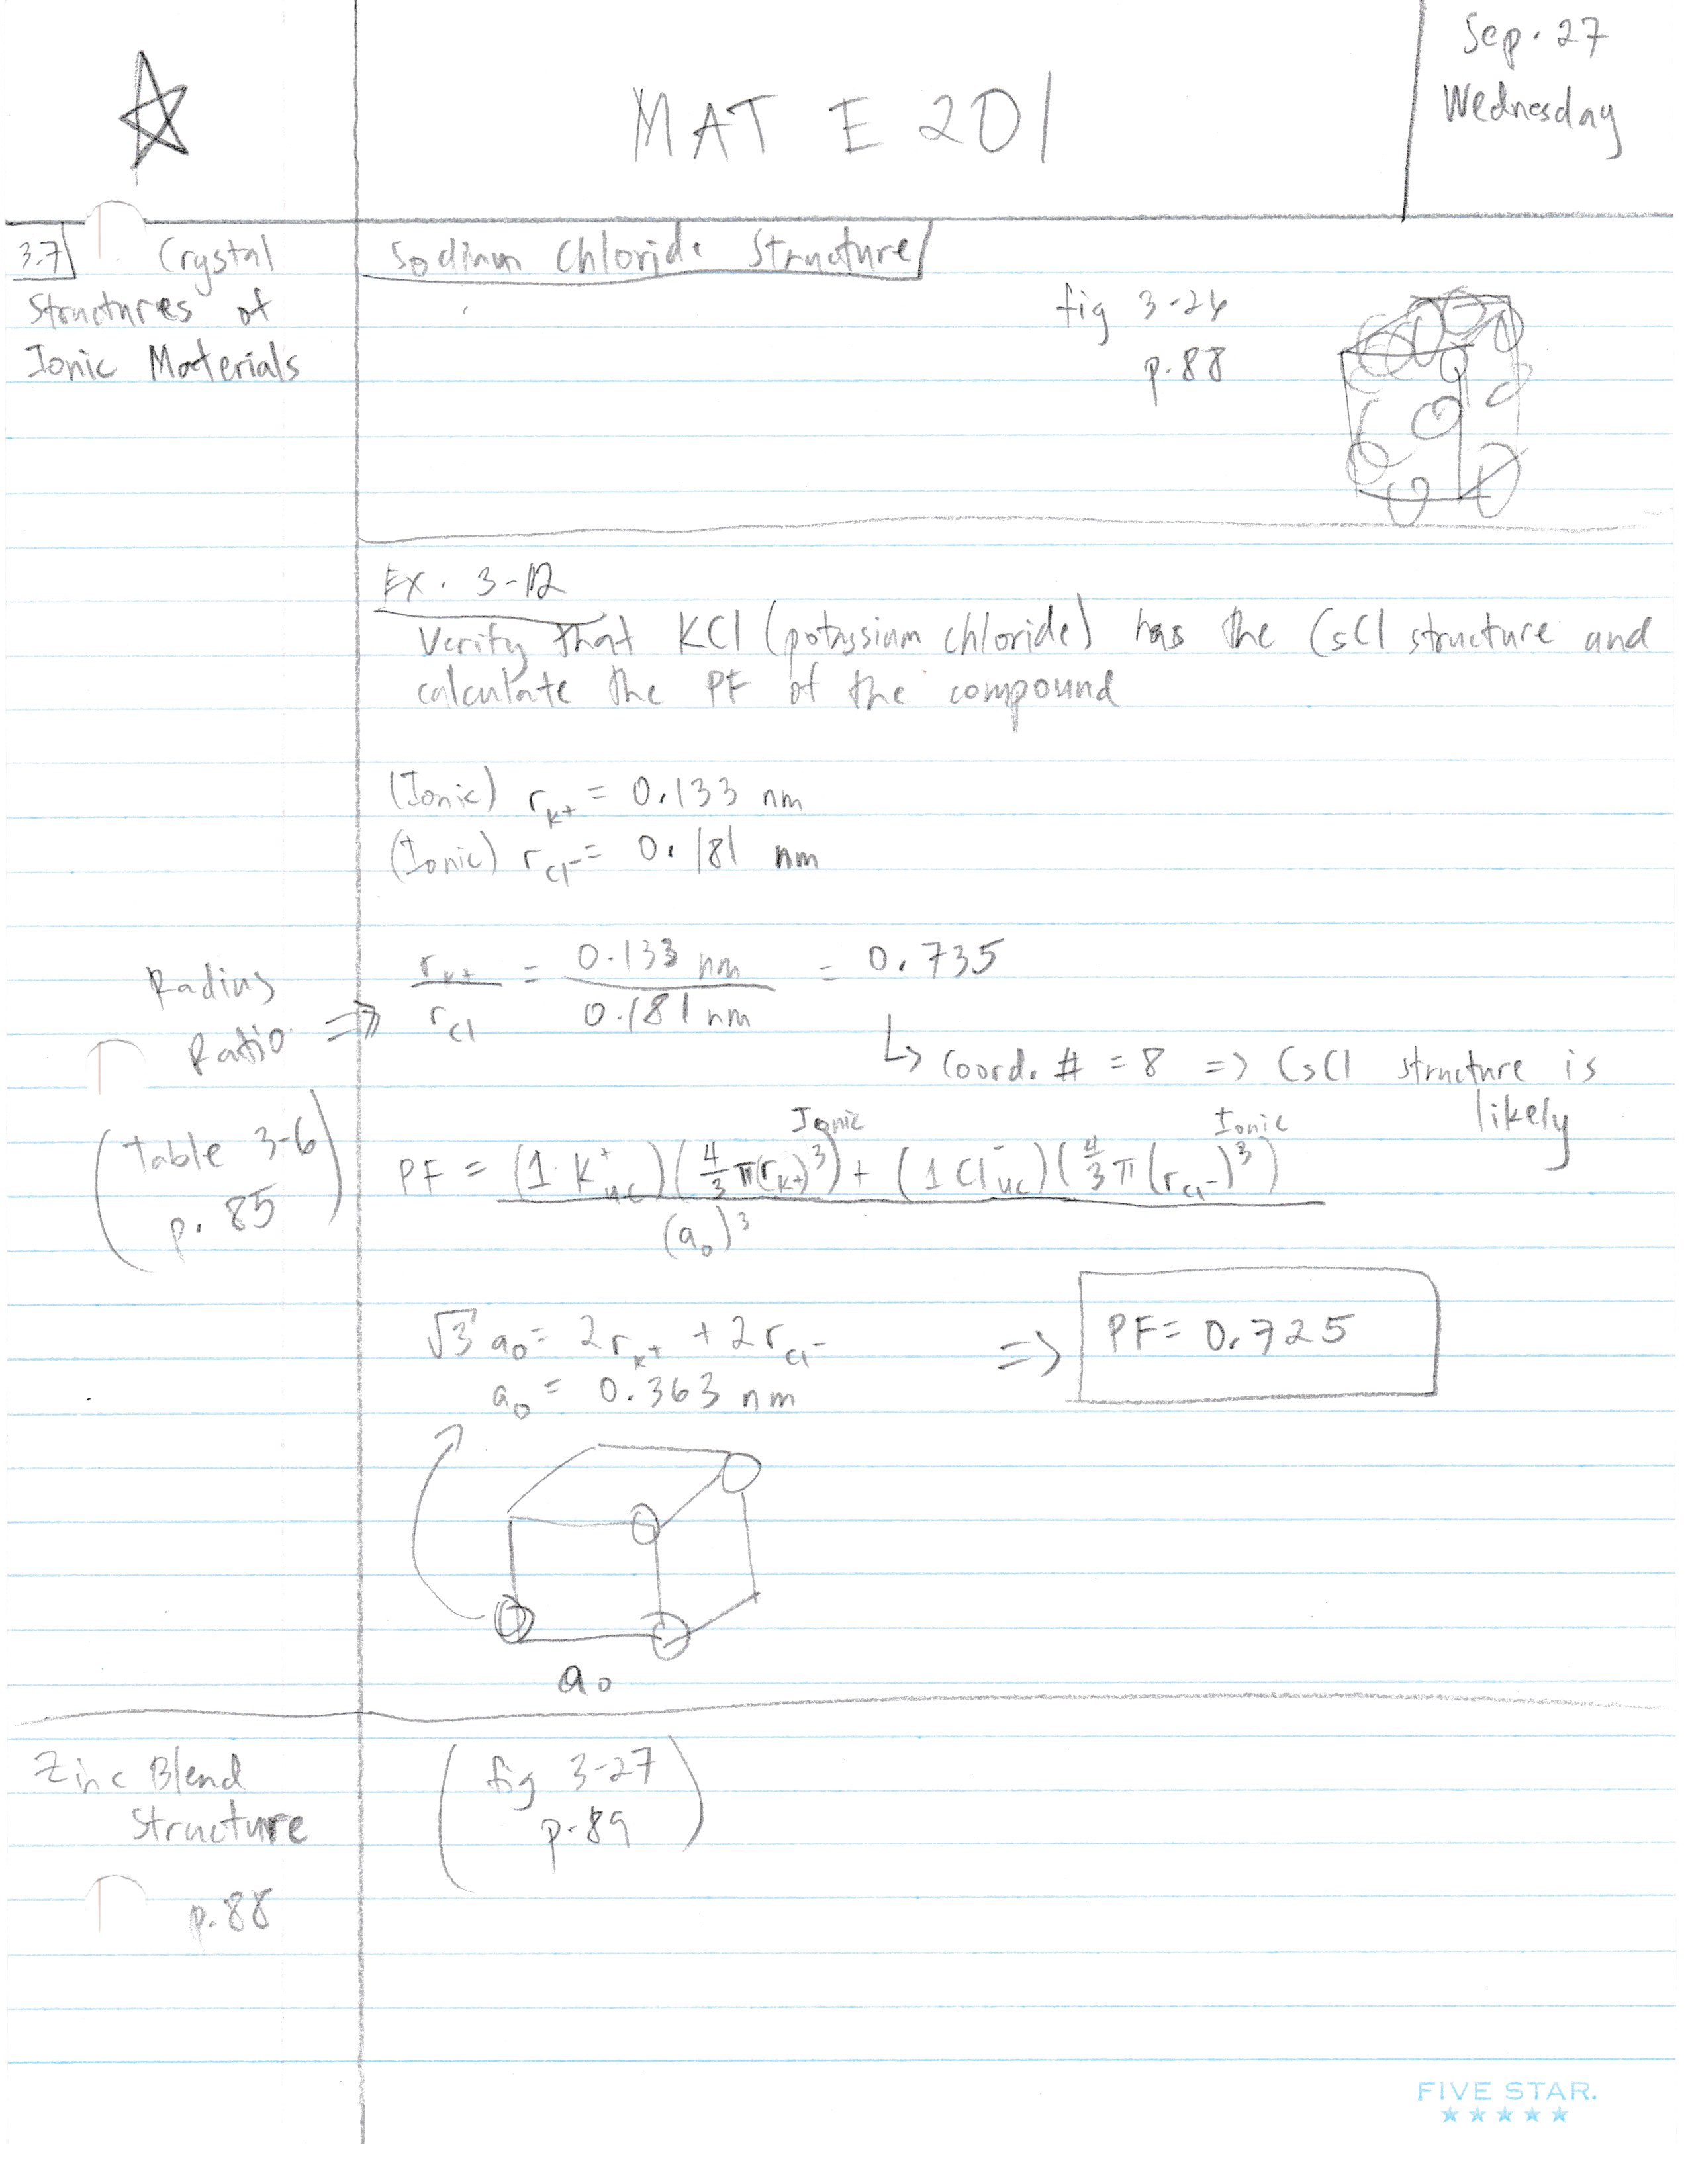 MAT E 201
Sep. 27
Wednesday
3.7 Crystal
Structures of
Ionic Materials
Sodium Chloride Structure
fig 3-26
p.88
Ex. 3-12
Verify that KCl (potassium chloride) has the CsCl structure and
calculate the PF of the compound
(Ionic) r_K+ = 0.133 nm
(Ionic) r_Cl- = 0.181 nm
Radius
Ratio =>
r_K+ / r_Cl = 0.133 nm / 0.181 nm = 0.735
↳ Coord. # = 8 => CsCl structure is
likely
(Table 3-6
p. 85)
Ionic Ionic
PF = (1 K+_uc)(4/3 π(r_K+)^3) + (1 Cl-_uc)(4/3 π(r_Cl-)^3) / (a_0)^3
√3 a_0 = 2r_K+ + 2r_Cl-
a_0 = 0.363 nm
=> PF = 0.725
a_0
Zinc Blend
Structure
p.88
(fig 3-27
p.89)
FIVE STAR.
★★★★★